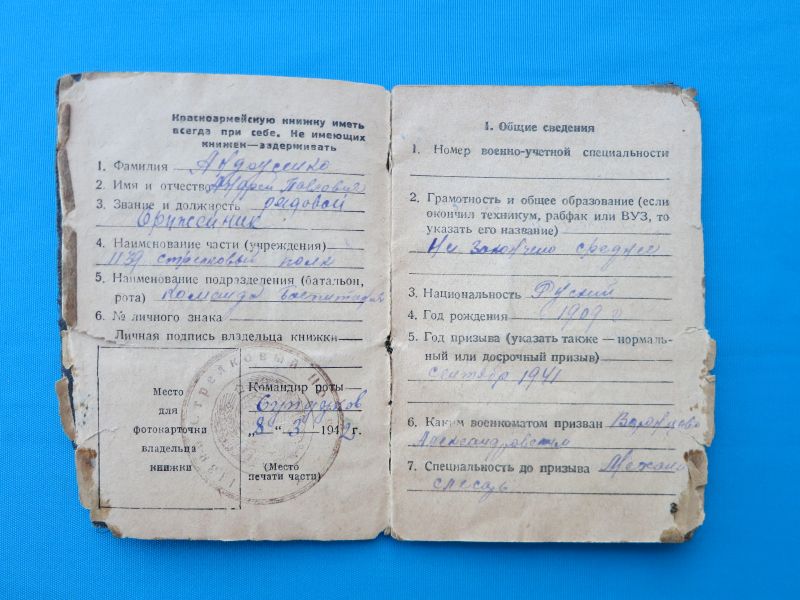 Красноармейскую книжку иметь
всегда при себе. Не имеющих
книжек—задерживать
1. Фамилия
2. Имя и отчество Андрей Павлович
3. Звание и должность рядовой
Оружейник
4. Наименование части (учреждения)
1139 стрелковый полк
5. Наименование подразделения (батальон,
рота) команда
6. № личного знака
Личная подпись владельца книжки
Место
для
фотокарточки
владельца
книжки
Командир роты
„8“ 3 1942г.
(Место
печати части)
1. Общие сведения
1. Номер военно-учетной специальности
2. Грамотность и общее образование (если
окончил техникум, рабфак или ВУЗ, то
указать его название)
Не закончено среднее
3. Национальность Руский
4. Год рождения 1909 г
5. Год призыва (указать также — нормаль-
ный или досрочный призыв)
сентябрь 1941
6. Каким военкоматом призван
Александровским
7. Специальность до призыва
слесарь
3